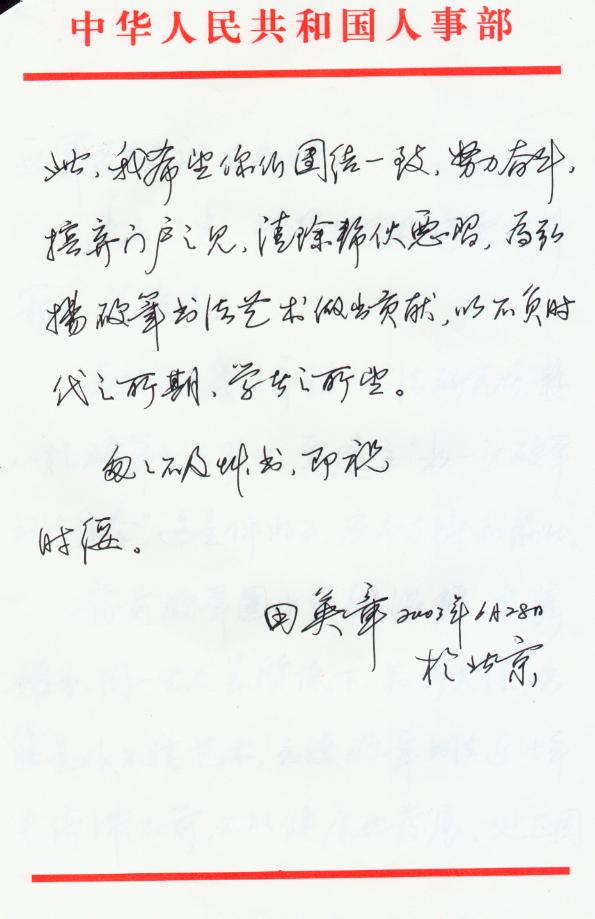 中华人民共和国人事部
此，我希望你们团结一致，努力奋斗，
摈弃门户之见，清除帮伙恶习，为弘
扬硬笔书法艺术做出贡献，以不负时
代之所期，学长之所望。
匆匆不及草书，即祝
时绥。
田英章2003年6月28日
于北京